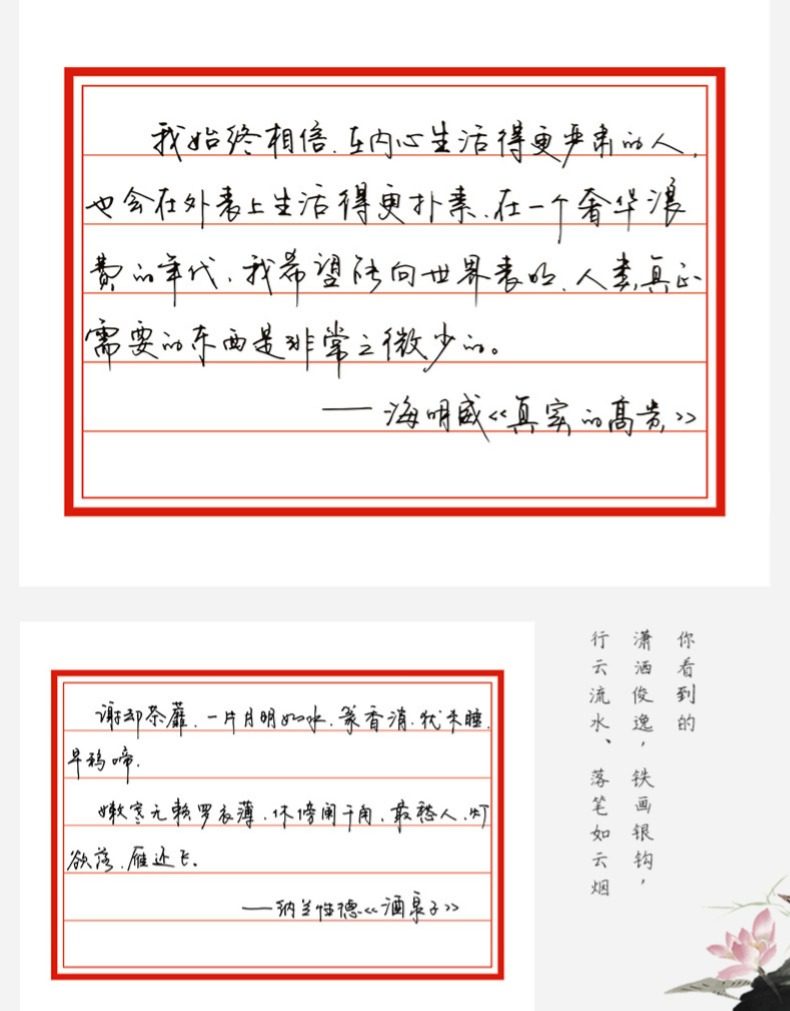 我始终相信.在内心生活得更严肃的人,
也会在外表上生活得更扑素.在一个奢华浪
费的年代,我希望能向世界表明.人类真正
需要的东西是非常之微少的。
——海明威《真实的高贵》
谢却荼蘼.一片月明如水.篆香消.犹未睡.
早鸦啼.
嫩寒无赖罗衣薄.休傍阑干角.最愁人.灯
欲落.雁还飞。
——纳兰性德《酒泉子》
你看到的
潇洒俊逸，铁画银钩，
行云流水、落笔如云烟